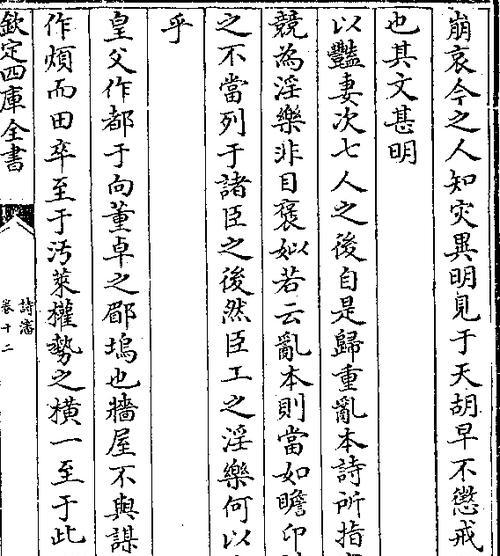 崩哀今之人知灾異明見于天胡早不懲戒
也其文甚明
以豔妻次七人之後自是歸重亂本詩所指
競為淫樂非目褒姒若云亂本則當如瞻卬
之不當列于諸臣之後然臣工之淫樂何以
乎
皇父作都于向董卓之郿塢也牆屋不與謀
作煩而田卒至于汚萊權勢之横一至于此
欽定四庫全書
詩瀋
卷十二